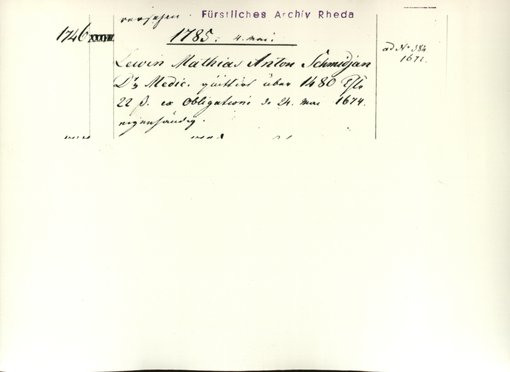 versehen. Fürstliches Archiv Rheda
1746 1785. 4. Mai. ad No 384
Lewin Mathias Anton Schmidjan 1671.
Dr Medic. quittirt über 1480 Thlr
22 ß. ex Obligationi de 24. Mai 1674.
eigenhändig.